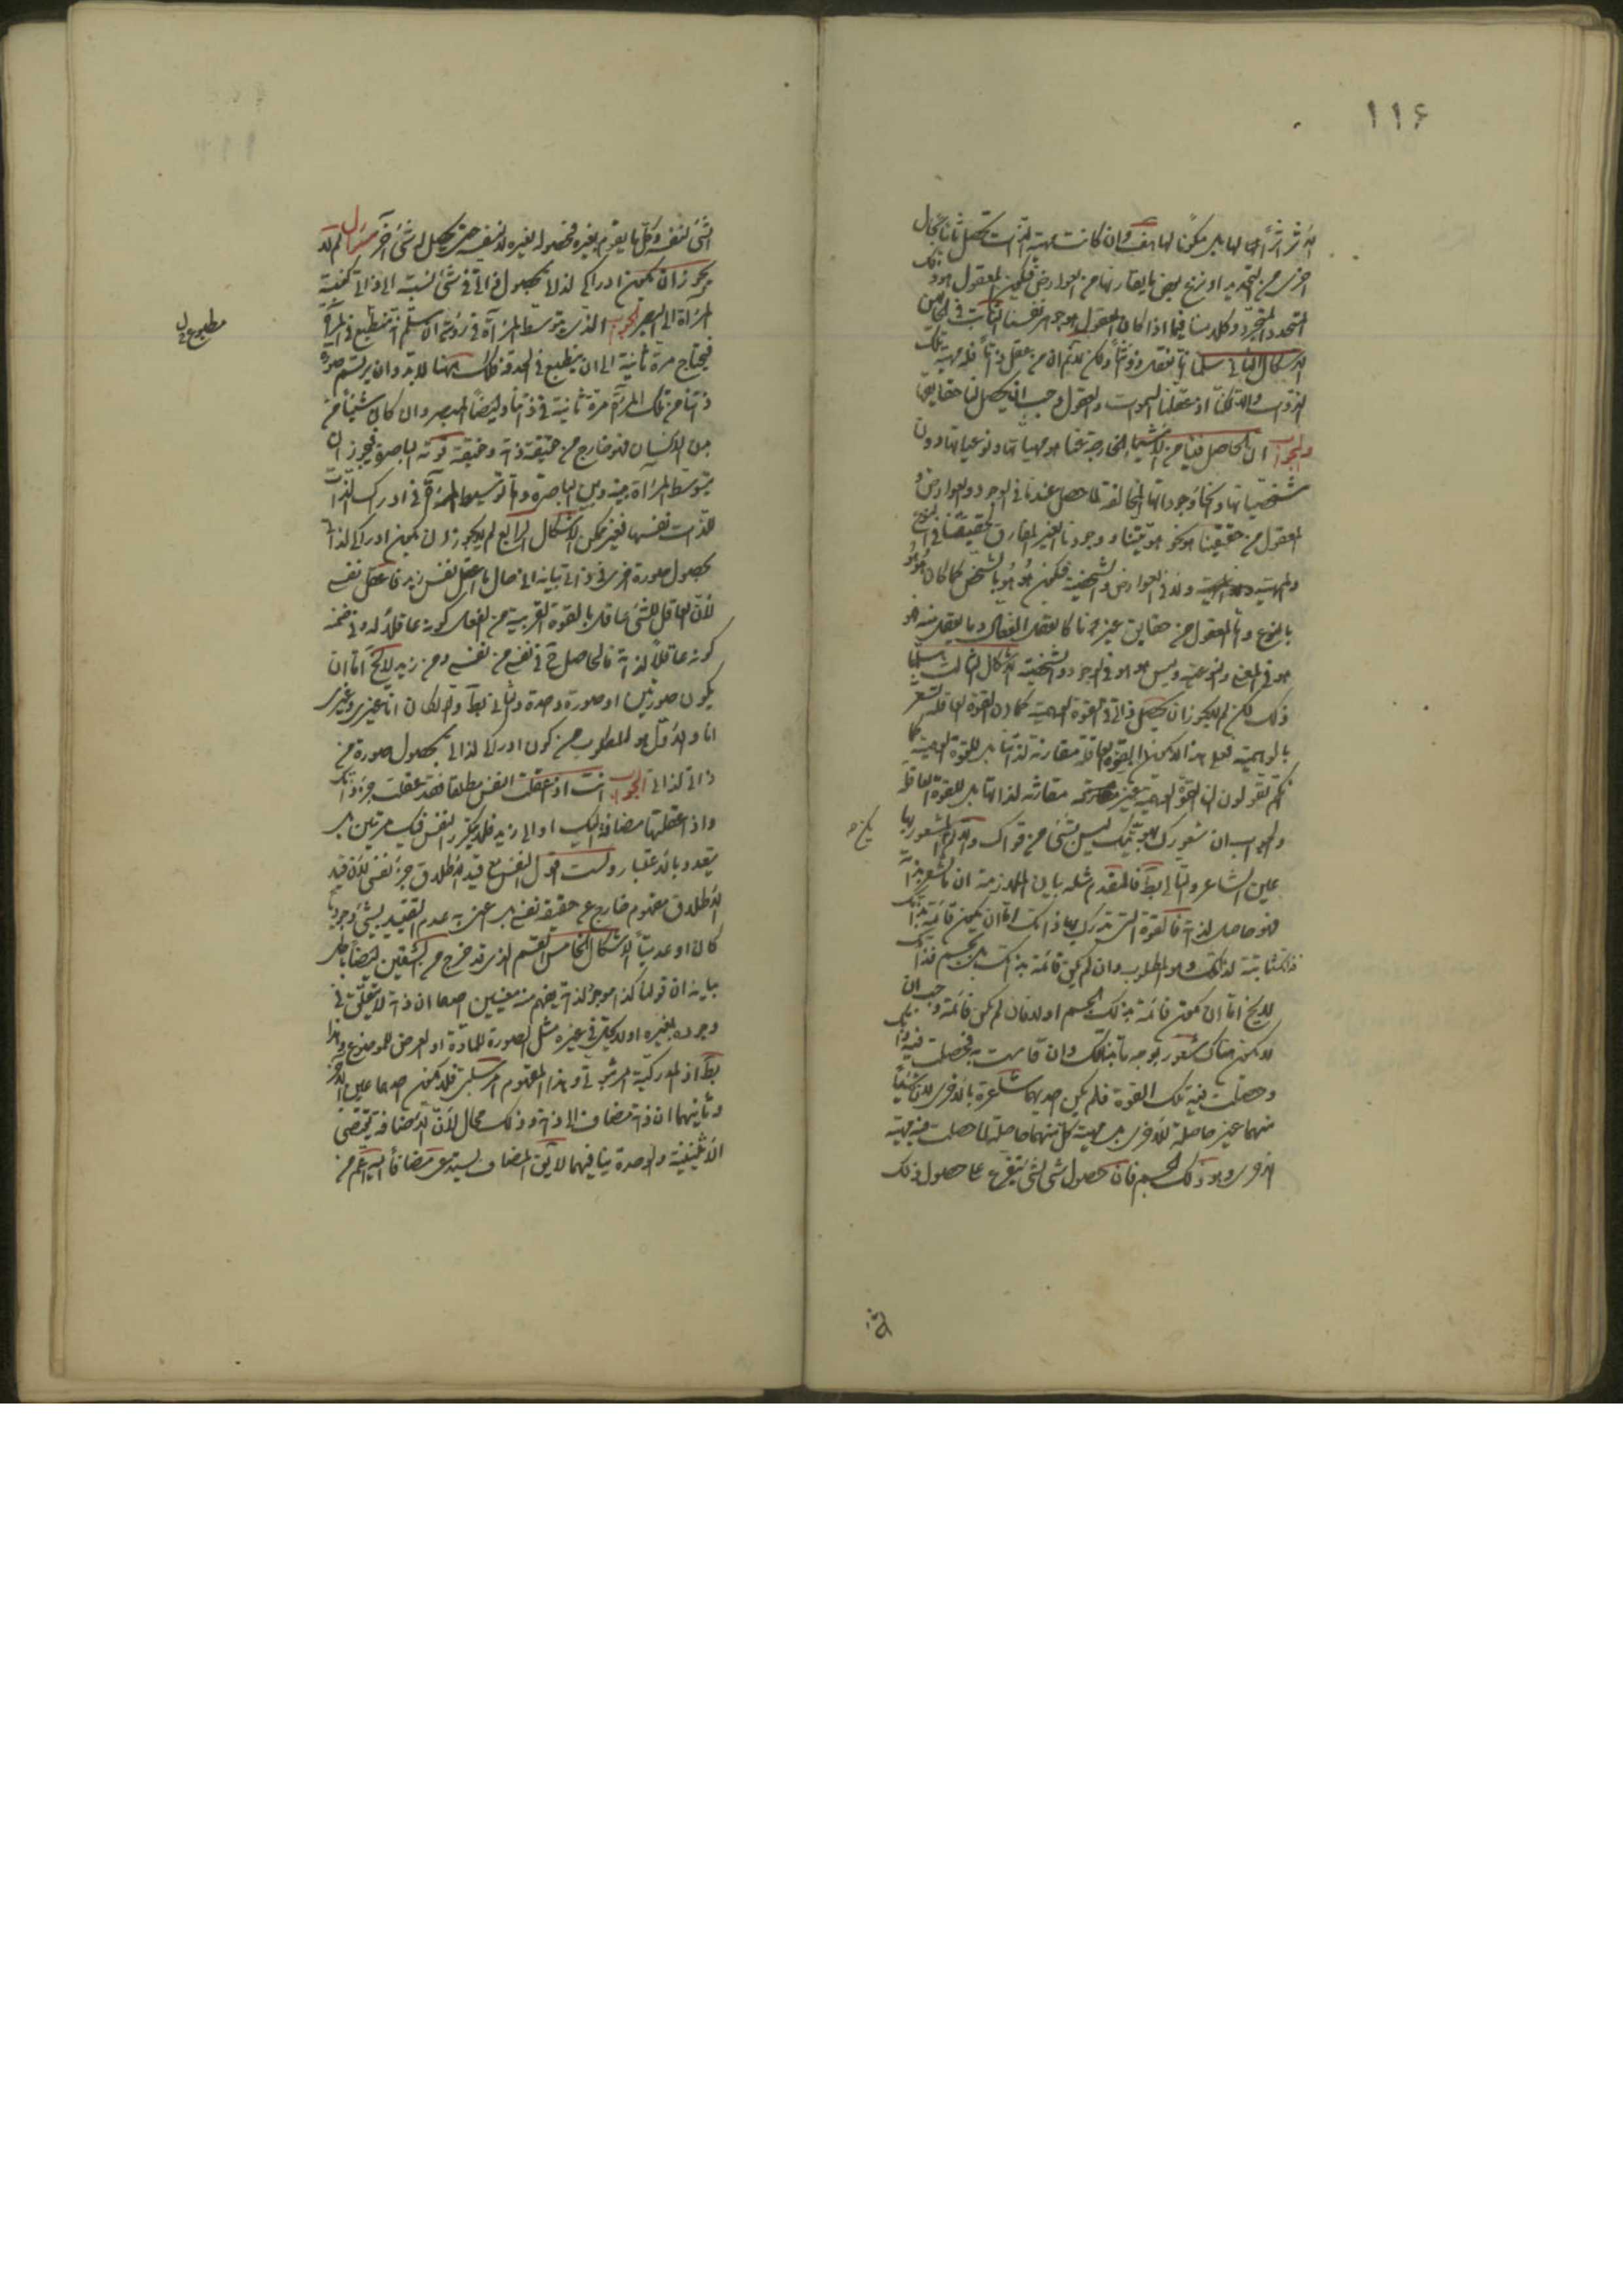 ١١٦
الأثر أثراً لها بل مكوناً لها هف وان كانت مهية الذات تحصل ثانياً بحال
اخرى من التجريد او نزع بعض ما يقارنها من العوارض فيكون المعقول هو ذلك
المتجدد المتجرد وكلامنا فيما اذا كان المعقول هو جوهر نفسنا الثابت في الحالين
الاشكال الثاني سلمنا انا نعقل ذوتنا ولكن لم قلتم ان من عقل ذاتا فله مهية تلك
الذات والا لكنا اذ عقلنا الاله والعقول وجب ان يحصل لنا حقايقها
والجواب ان الحاصل فينا من الاشياء الخارجة عنا هو مهياتها ونوعياتها دون
شخصياتها وانحاء وجوداتها المخالفة لما حصل عندنا في الوجود والعوارض و
المعقول من حقيقتنا هو نحو هويتنا ووجودنا الغير المفارق لحقيقتنا في النوع
والمهية ولا في العوارض والشخصية فيكون هو هو بالشخص كما كان هو هو
بالنوع واما المعقول من حقايق غيرنا كالعقل الفعال وما يعقل منه فهو
هو في المعنى والنوعية وليس هو هو في الوجود والشخصية الاشكال الثالث سلمنا
ذلك لكن لم لا يجوز ان تحصل ذاتي في القوة الوهمية كما ان القوة العاقلة تشعر
بالوهمية فعلى هذا لا يكون القوة العاقلة مقارنة لذاتها بل للقوة الوهمية كما
انكم تقولون ان القوة الوهمية غير مقارنة لذاتها بل للقوة العاقلة
والجواب ان شعورك بهويتك ليس بشئ من قواك والا لم يكن المشعور بها
يكن ح
عين الشاعر والتالي بط فالمقدم مثله بيان الملازمة ان ما شعر بذاته
فهو حاصل لذاته فالقوة التي تدرك بها ذاتك اما ان يكون قائمة بذاتك
فذاتك ثابتة لذاتك وهو المطلوب وان لم يكن قائمة بذاتك بل بجسم فذاتك
لا يخ اما ان تكون قائمة بذلك الجسم او لا فان لم تكن قائمة وجب ان
لا يكون هناك شعور بوجه بتابذاتك وان قامت به فحصلت فيه ذاتك
وحصلت فيه تلك القوة فلم يكن احديهما شاعرة بالاخرى لان شيئاً
منهما غير حاصلة للاخرى بل مهية كل منهما حاصلة لما حصلت فيه مهية
الاخرى وهو ذلك الجسم فان حصول شئ لشئ يتفرع على حصول ذلك
الشئ لنفسه وكل ما يقوم بغيره فحصوله لغيره لا لنفسه حتى يحصل له شئ آخر سؤال لم لا
يجوز ان يكون ادراكي لذاتي بحصول ذاتي في شئ نسبته الى ذاتي كنسبة
المرآة الى البصر الجواب الذي يتوسط المرآة في رؤيته ان سلم انه تنطبع في المرآة
فيحتاج مرة ثانية الى ان ينطبع في الحدقة فكذلك ههنا لابد وان يرتسم صورة
مطبوع في
ذاتنا من تلك المرآة مرة ثانية في ذاتنا وايضا المبصر وان كان شيئا من
بدن الانسان فهو خارج من حقيقة ذاته وحقيقة قوته الباصرة فيجوز ان
يتوسط المرآة بينه وبين الباصرة واما توسيط المرآة في ادراك الذات
للذات نفسها فغير ممكن الاشكال الرابع لم لا يجوز ان يكون ادراكي لذاتي
بحصول صورة اخرى في ذاتي بيانه اني حال ما اعقل نفس زيد فاعقل نفسي
لان العاقل للشئ عاقل بالقوة القريبة من الفعل كونه عاقلا له وفي ضمنه
كونه عاقلا لذاته فالحاصل ح في نفسي من نفسي ومن زيد لا يخ اما ان
يكون صورتين او صورة واحدة والثاني بط والا لكان انا غيري وغيري
انا والاول هو المطلوب من كون ادراكي لذاتي بحصول صورة من
ذاتي لذاتي الجواب انت اذا عقلت النفس مطلقا فقد عقلت جزء ذاتك
واذا عقلتها مضافة اليك او الى زيد فلا يتكرر النفس فيك مرتين بل
يتعدد بالاعتبار ولست اقول النفس مع قيد الاطلاق جزء نفسي لان قيد
الاطلاق مفهوم خارج عن حقيقة نفسي بل اعني به عدم التقييد بشئ وجوديا
كان او عدميا الاشكال الخامس القسم الذي قد خرج من الشقين ايضا باطل
بيانه ان قولنا كذا موجود لذاته يفهم منه معنيين احدهما ان ذاته لا يتعلق في
وجوده بغيره او لا يحل في غيره مثل الصورة للمادة او العرض للموضوع وهذا
بط اذ المدركية امر ثبوتي وهذا المفهوم امر سلبي فلا يكون احدهما عين الاخر
وثانيهما ان ذاته مضاف الى ذاته وذلك محال لان الاضافة تقتضي
الاثنينية والوحدة ينافيهما لا يق المضاف يستدعي مضافا اليه اعم من